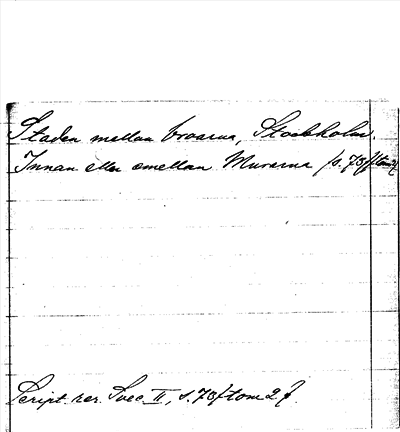 Staden mellan broarna, Stockholm.
Innan eller emellan Murarna /s. 73/tom 2/
Script. rer. Svec. II, s. 73/tom 2/.